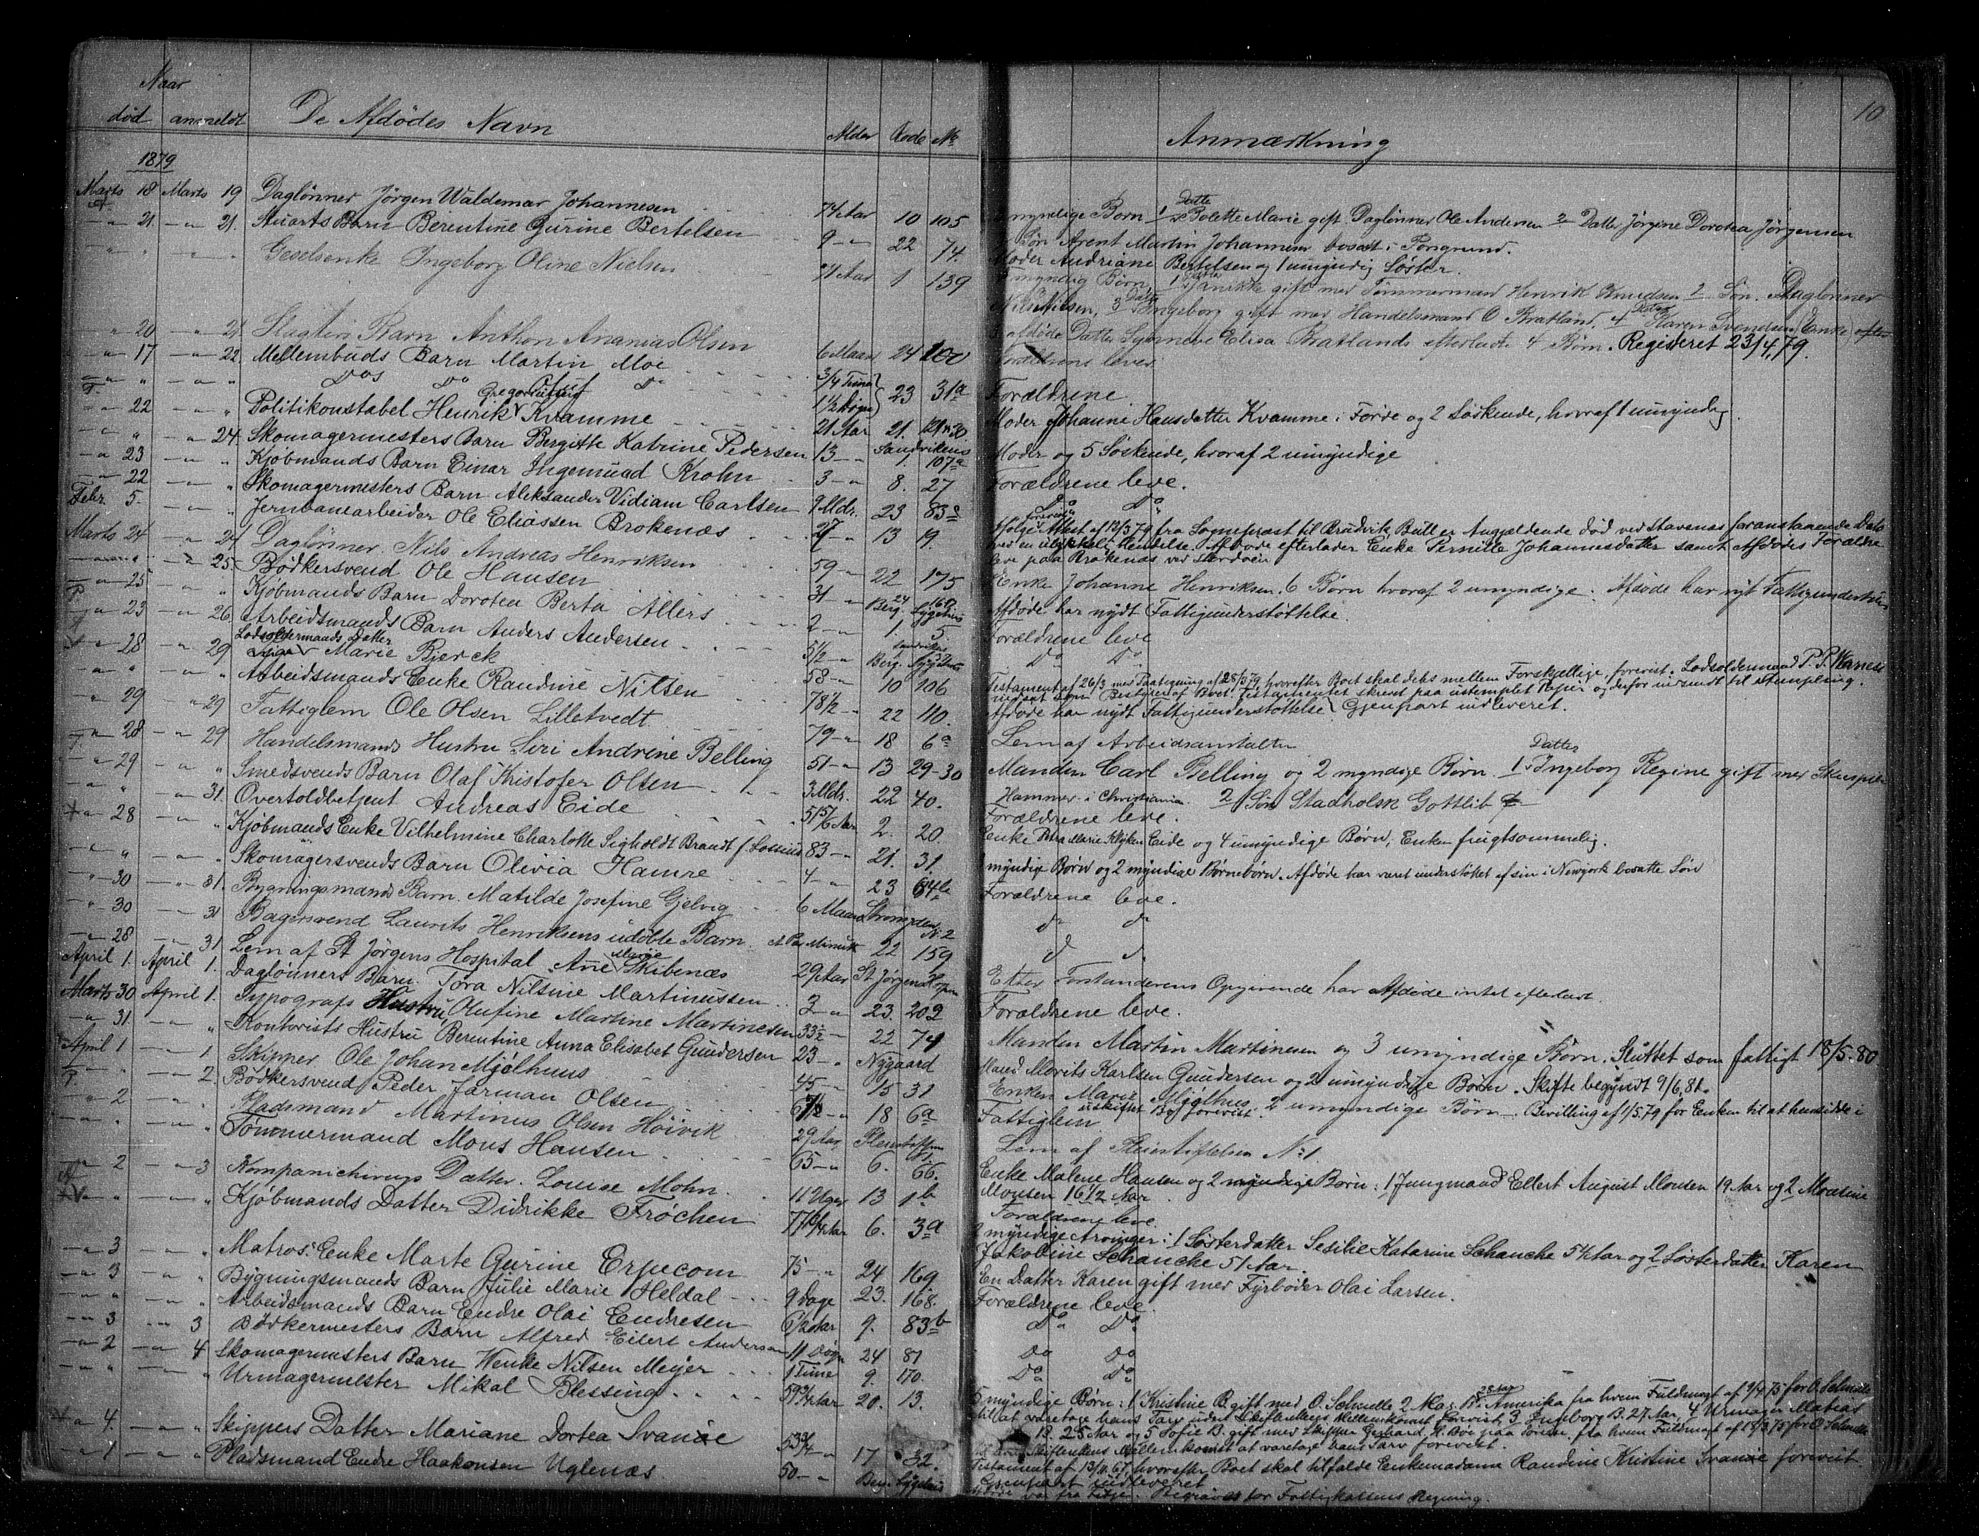 Naar
død anmeldt De Afdødes Navn Alder Rode No
1879
Marts 18 Marts 19 Daglønner Jørgen Waldemar Johannesen 74 Aar 10 105
" 21. " 21. Stuarts Barn Berentine Gurine Bertelsen 9 " 22 74.
" " Geselsenke Ingeborg Oline Nielsen 71 Aar 1 139
" 20 " 21 Slagters Barn Anthon Ananias Olsen 6 Maan 24 100
" 17 " 22. Mellembuds Barn Martin Moe 3/4 Time 23 31a
" " " " Do's Do Do 1 1/2 Døgn
" 22 " " Politikonstabel Henrik Kvamme 21 Aar 21.
" " " 24. Skomagermesters Barn Bergitte Katrine Pedersen 13 " Sandvikens
" 23 " " Kjøbmands Barn Einar Ingemund Krohn 3 " 1. 107a
" 22 " " Skomagermesters Barn Aleksander Vidiam Carlsen 9 Mdr. 8. 27
Febr. 5 " " Jernbanearbeider Ole Eliassen Brokenæs 27 " 23 83
Marts 24 " 24 Daglønner Nils Andreas Henriksen 59 " 13 19.
" " " 25. Bødkersvend Ole Hansen 31 " 22 175
" 25 " " Kjøbmands Barn Dorotea Berta Allers 2 "
" 23 " 26. Arbeidsmands Barn Anders Andersen 5 1/2 " 1. 5.
" 28 " 29 Lodsoldermands Datter Marie Bjerck 58 "
" " " " Arbeidsmands Enke Randine Nilsen 78 1/2 " 10 106
" 29 " 29 Fattiglem Ole Olsen Lilletvedt 79 " 22 110.
" 28 " 29 Handelsmands Hustru Siri Andrine Belling 51 " 18 6a
" 29 " " Smedsvends Barn Olaf Kristofer Olsen 3 Mdr. 13 29-30
" " " 31. Overtoldbetjent Andreas Eide 51 5/6 Aar 22 40.
" 28 " " Kjøbmands Enke Vilhelmine Charlotte Sigholdt Brandt f. Lossius 83 " 2. 20
" " " " Skomagersvends Barn Olivia Hamre 4 " 21. 31.
" 30 " 31. Bygningsmands Barn Matilde Josefine Gjelvig 6 Maan 23 64
" 30 " 31 Bagersvend Laurits Henriksens udøbte Barn Minut
" 28 " 31. Lem af St Jørgens Hospital Ane Marie Skibenæs 29 Aar 22 159
April 1. April 1. Daglønners Barn Tora Nilsine Martinussen 2 " St Jørgens
Marts 30 April 1. Typografs Hustru Olufine Martine Martinesen 33 1/2 " 23. 202
" 31. " " Kontorists Hustru Berentine Anna Elisabet Gundersen 23 " 22 74
April 1 " 1. Skipper Ole Johan Mjølhus 45 " Nygaard
" " " 2. Bødkersvend Peder Jørman Olsen 15 31
" 2 " " Pladsmand Martinus Olsen Høivik 29 Aar 18 6a
" " " " Tømmermand Mons Hansen 65 " 6. 66.
" 2 " 3 Kompanichirurgs Datter Louise Mohn 11 Uger 13 1b
" " " " Kjøbmands Datter Didrikke Frøchen 6. 3a
" 3 " " Matros. Enke Marte Gurine Erpecom 75 " 24 169
" 3 " " Bygningsmands Barn Julie Marie Heldal 9 Dage 23. 168.
" " " " Arbeidsmands Barn Endre Olai Endresen 9. 83b
" 3 " 3 Bødkermesters Barn Alfred Eilert Andersen 11 Døgn 24 81
" 2 " 4 Skomagermesters Barn Wenke Nilsen Meyer 1 Time 9. 170.
" " " " Urmagermester Mikal Blessing 59 3/4 Aar 20. 13.
" 4. " " Skippers Datter Mariane Dortea Svanøe 53 1/2 " 17 32.
" 1 " " Pladsmand Endre Haakonsen Uglenæs 50 "
10
Anmærkning
myndige Børn 1 Datter Bolette Marie gift Daglønner Ole Andersen 2 Datter Jørgine Dorotea Jørgensen
Søn Arent Martin Johannesen bosat i Porsgrund.
Moder Andriane Bertelsen og 1 umyndig Søster.
myndig Børn 1 Datter gift med Tømmermand Henrik Knudsen 2 Søn Daglønner
Nielsen, 3 Datter Ingeborg gift med Handelsmand O Bratland, 4 Datter Karen Svendsen (Enke)
afdøde Datter Synneve Elisa Bratlands efterladte 4 Børn. Registreret 23/4,79.
Forældrene leve.
Forældrene
Moder Johanne Hansdatter Kvamme i Førde og 2 Søskende, hvoraf 1 umyndig.
Moder og 5 Søskende, hvoraf 2 umyndige
Forældrene leve.
Do Do
Ifølge Attest af 12/3 79 fra Sognepræst til Brudvik, Bull er Angjældende død ved Stavenæs foranstaaende Dato
ved en ulykkelig Hændelse. Afdøde efterlader Enke Pernille Johannesdatter samt Afdødes Forældre
leve paa Brokenæs ved Lerdøen
Enke Johanne Henriksen. 6 Børn hvoraf 2 umyndige. Afdøde har nydt Fattigunderstøt
Afdøde har nydt Fattigunderstøttelse.
Forældrene leve
Do Do
Testament af 26/3 med Paategning af 28/3 79 hvorefter Boet skal deles mellem Forskjellige, forevist. Lodsoldermand P. P. Warness
indsat som Bestyrer af Boet. Testamentet skrevet paa ustemplet Papir og derfor indsendt til Stempling.
Afdøde har nydt Fattigunderstøttelse. Gjenpart indleveret.
Lem af Arbeidsanstalten
Manden Carl Belling og 2 myndige Børn. 1 Datter Ingeborg Regine gift med Skuespiller
Hammer i Christiania. 2 Søn Stadholsk Gottlib
Forældrene leve.
Enke Petra Marie Klyken Eide og 4 umyndige Børn, Enken frugtsommelig.
myndige Børn og 2 myndige Børnebørn. Afdøde har været understøttet af sin i Newjork bosatte Søn
Forældrene leve.
Do Do
Do Do
Efter Forstanderens Opgivende har Afdøde intet efterladt.
Forældrene leve.
Manden Martin Martinesen og 3 umyndige Børn. Sluttet som fattigt 18/5.80
Mand Morits Karlsen Gundersen og 2 umyndige Børn. Skifte begyndt 9/6,81.
Enken Marie Mjølhus 2 umyndige Børn. Bevilling af 1/5.79 for Enken til at hensidde i
uskiftet Bo forevist.
Fattiglem
Lem af Stiftelsen No 1
Enke Malene Hansen og 2 myndige Børn: 1 Jungmand Ellert August Monsen 19 Aar og 2
Monsen 16 1/2 Aar.
Forældrene leve.
2 myndige Arvinger: 1 Søsterdatter Sesilie Katarine Schancke 54 Aar og 2 Søsterdatter Karen
Jakobine Schancke 51 Aar.
En Datter Karen gift med Fyrbøder Olai Larsen.
Forældrene leve.
Do Do
Do Do
Do Do
5 myndige Børn: 1 Kristine B. gift med O. Schnelle 2 i Amerika fra hvem Fuldmagt af 9/4 75 for O. Schnelle
til at varetage hans Tarv under Skiftet forevist, 3 Ingeborg B. 27 Aar, 4 Urmager Matias
B. 25 Aar og 5 Sofie B. gift med Skipper Gerhard H. Bøe fra hvem Fuldmagt af 18/3 75 for O. Schnelle
at varetage hans Tarv forevist.
Testament af 13/11.67, hvorefter Boet skal tilfalde Enkemadame Randine Kristine Svanøe forevist
Gjenpart indleveret
Afdøde var fra. Begraves for Fattigkassens Regning.